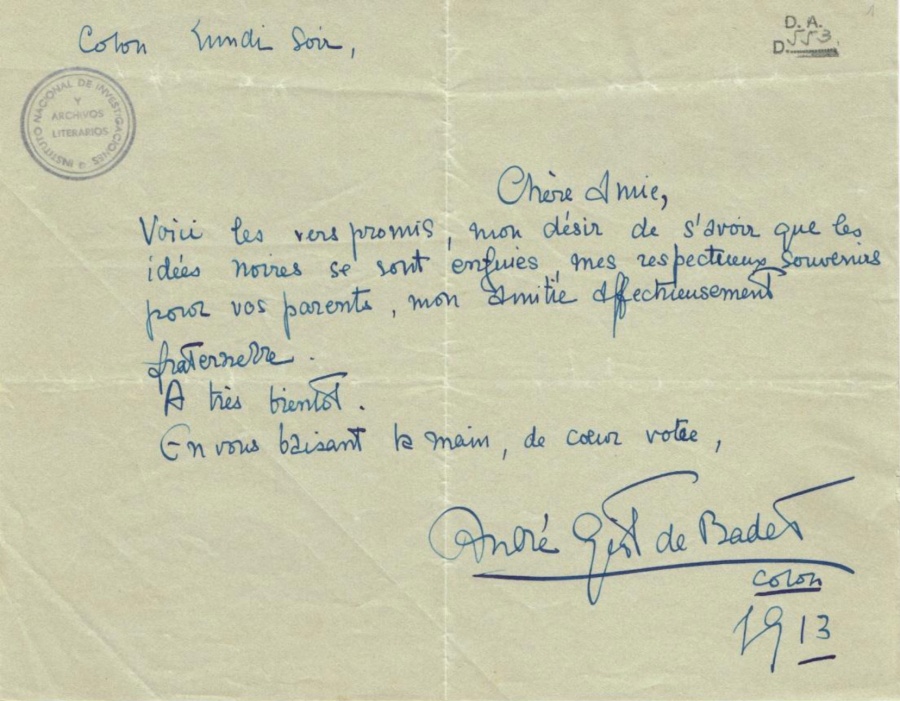 Colon Lundi Soir,
D. A.
D. 553
INSTITUTO NACIONAL DE INVESTIGACIONES
Y
ARCHIVOS
LITERARIOS
Chère Amie,
Voici les vers promis, mon désir de s'avoir que les
idées noires se sont enfuies, mes respectueux souvenirs
pour vos parents, mon Amitié Affectueusement
fraternelle.
A très bientôt.
En vous baisant la main, de cœur votre,
André de Badet
Colon
1913